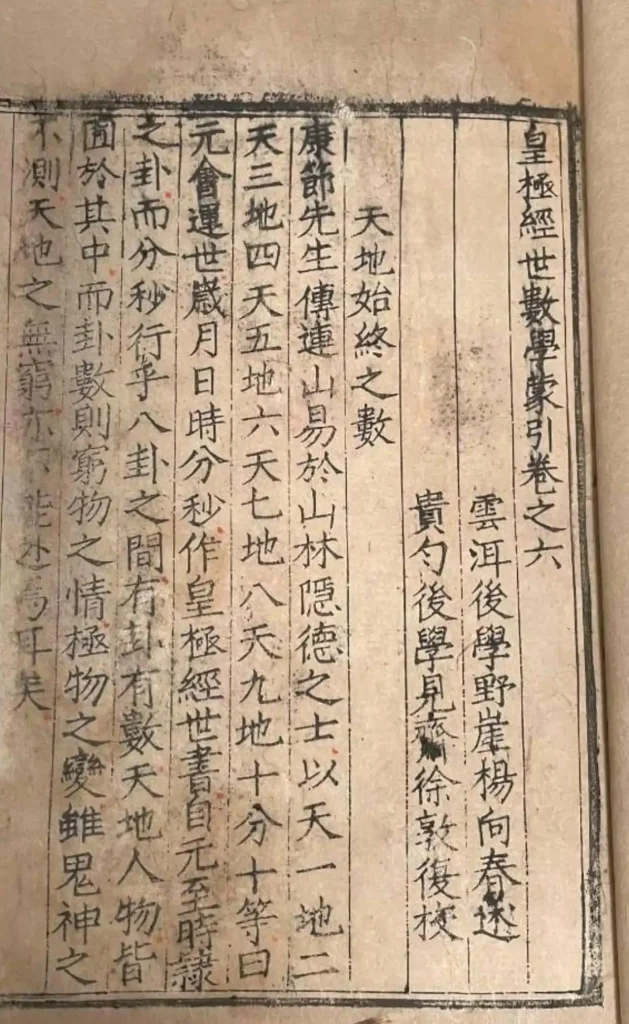 皇極經世數學蒙引卷之六
雲洱後學野崖楊向春述
貴勻後學見齋徐敦復校
天地始終之數
康節先生傳連山易於山林隱德之士以天一地二
天三地四天五地六天七地八天九地十分十等曰
元會運世歲月日時分秒作皇極經世書自元至時隸
之卦而分秒行乎八卦之間有卦有數天地人物皆
囿於其中而卦數則窮物之情極物之變雖鬼神之
不測天地之無窮亦不能 焉耳矣